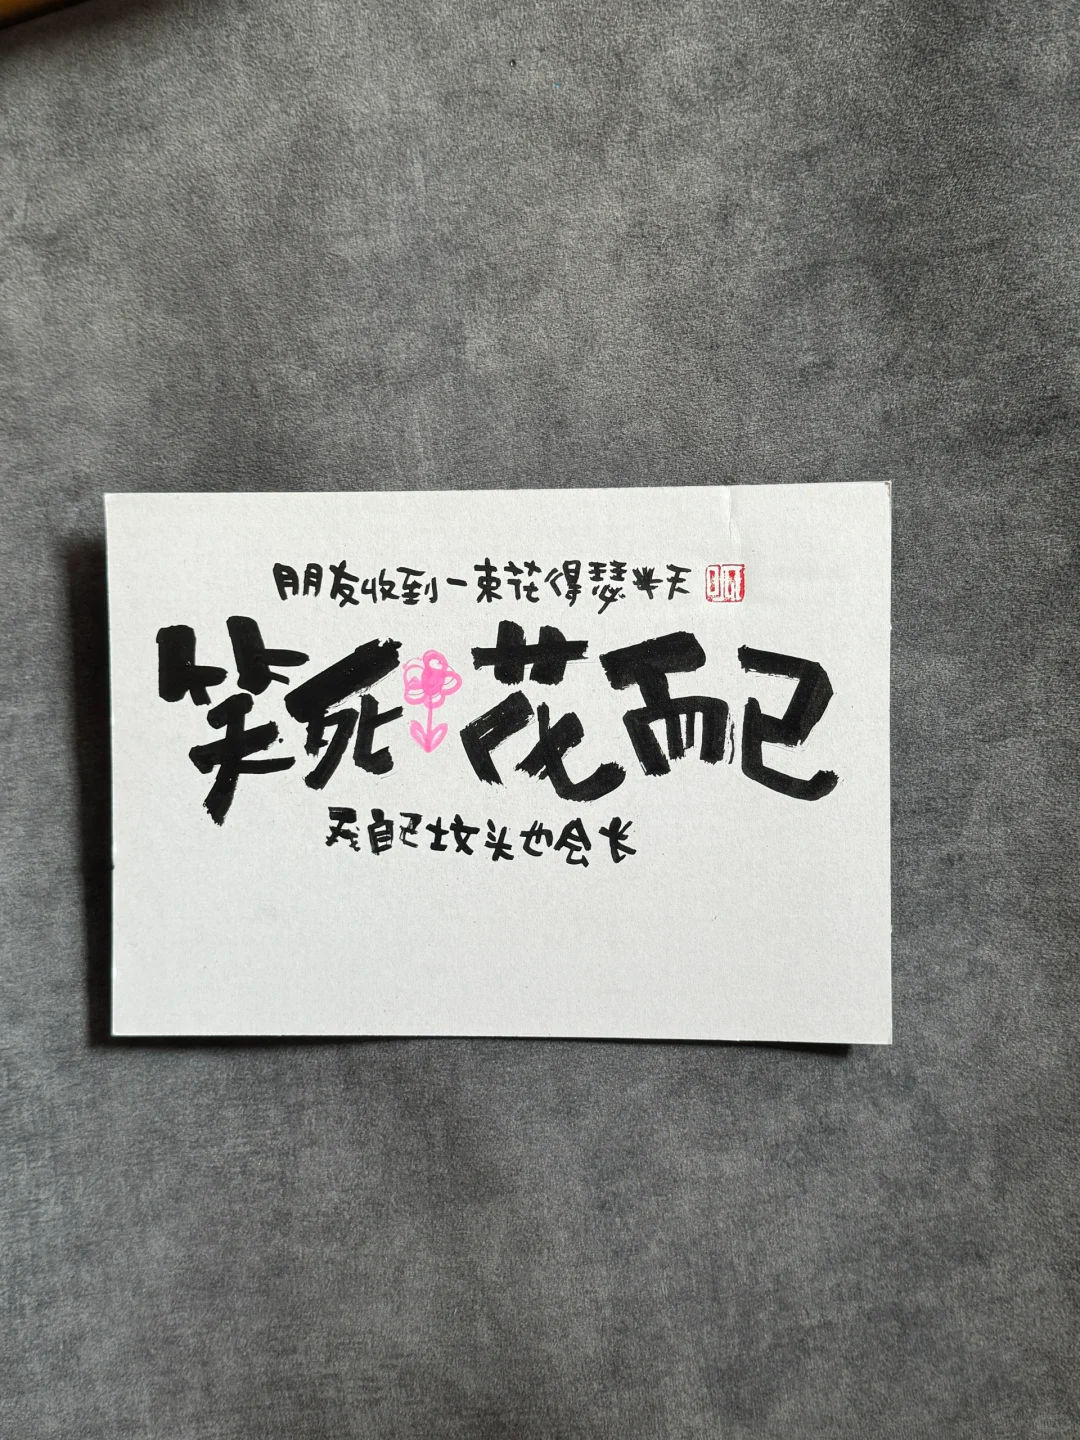 朋友收到一束花得瑟半天
笑死花而已
我自己坟头也会长